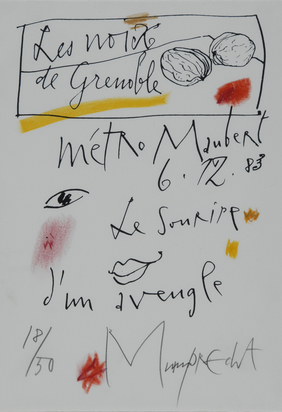 Les noix
de Grenoble
métro Maubert
6.12.83
Le Sourire
d'un aveugle
18/50
Mumprecht